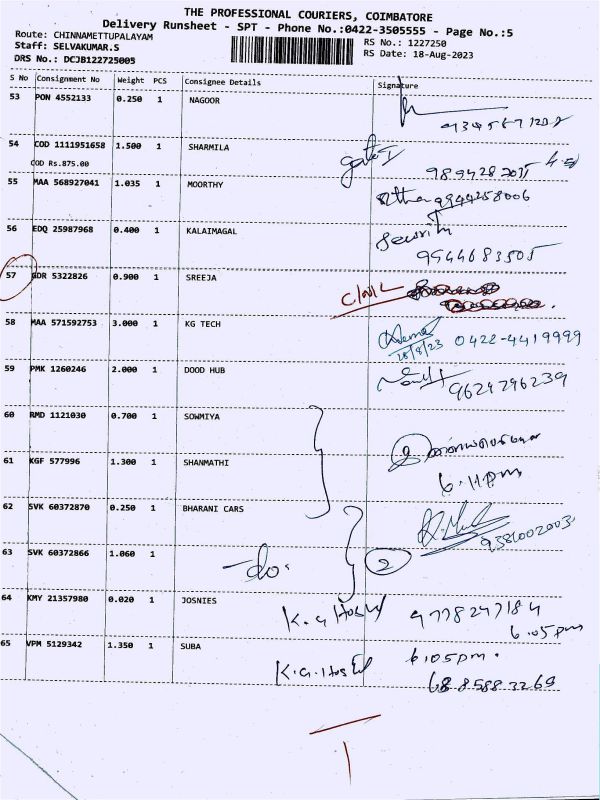 THE PROFESSIONAL COURIERS, COIMBATORE
Delivery Runsheet - SPT - Phone No.:0422-3505555 - Page No.:5
Route: CHINNAMETTUPALAYAM
Staff: SELVAKUMAR.S
DRS No.: DCJB122725005
RS No.: 1227250
RS Date: 18-Aug-2023
S No Consignment No Weight PCS Consignee Details Signature
53 PON 4552133 0.250 1 NAGOOR
54 COD 1111951658 1.500 1 SHARMILA
COD Rs.875.00
9894287035
55 MAA 568927041 1.035 1 MOORTHY
9944258006
56 EDQ 25987968 0.400 1 KALAIMAGAL
Security
9944683505
57 GDR 5322826 0.900 1 SREEJA
58 MAA 571592753 3.000 1 KG TECH
18/8/23 0422-4419999
59 PMK 1260246 2.000 1 DOOD HUB
9624796239
60 RMD 1121030 0.700 1 SOWMIYA
61 KGF 577996 1.300 1 SHANMATHI
6.11pm
62 SVK 60372870 0.250 1 BHARANI CARS
9381002003
63 SVK 60372866 1.060 1
-do.
2
64 KMY 21357980 0.020 1 JOSNIES
K.G Hostel
9778247184
6.05pm
65 VPM 5129342 1.350 1 SUBA
K.G.Hostel
6.05pm.